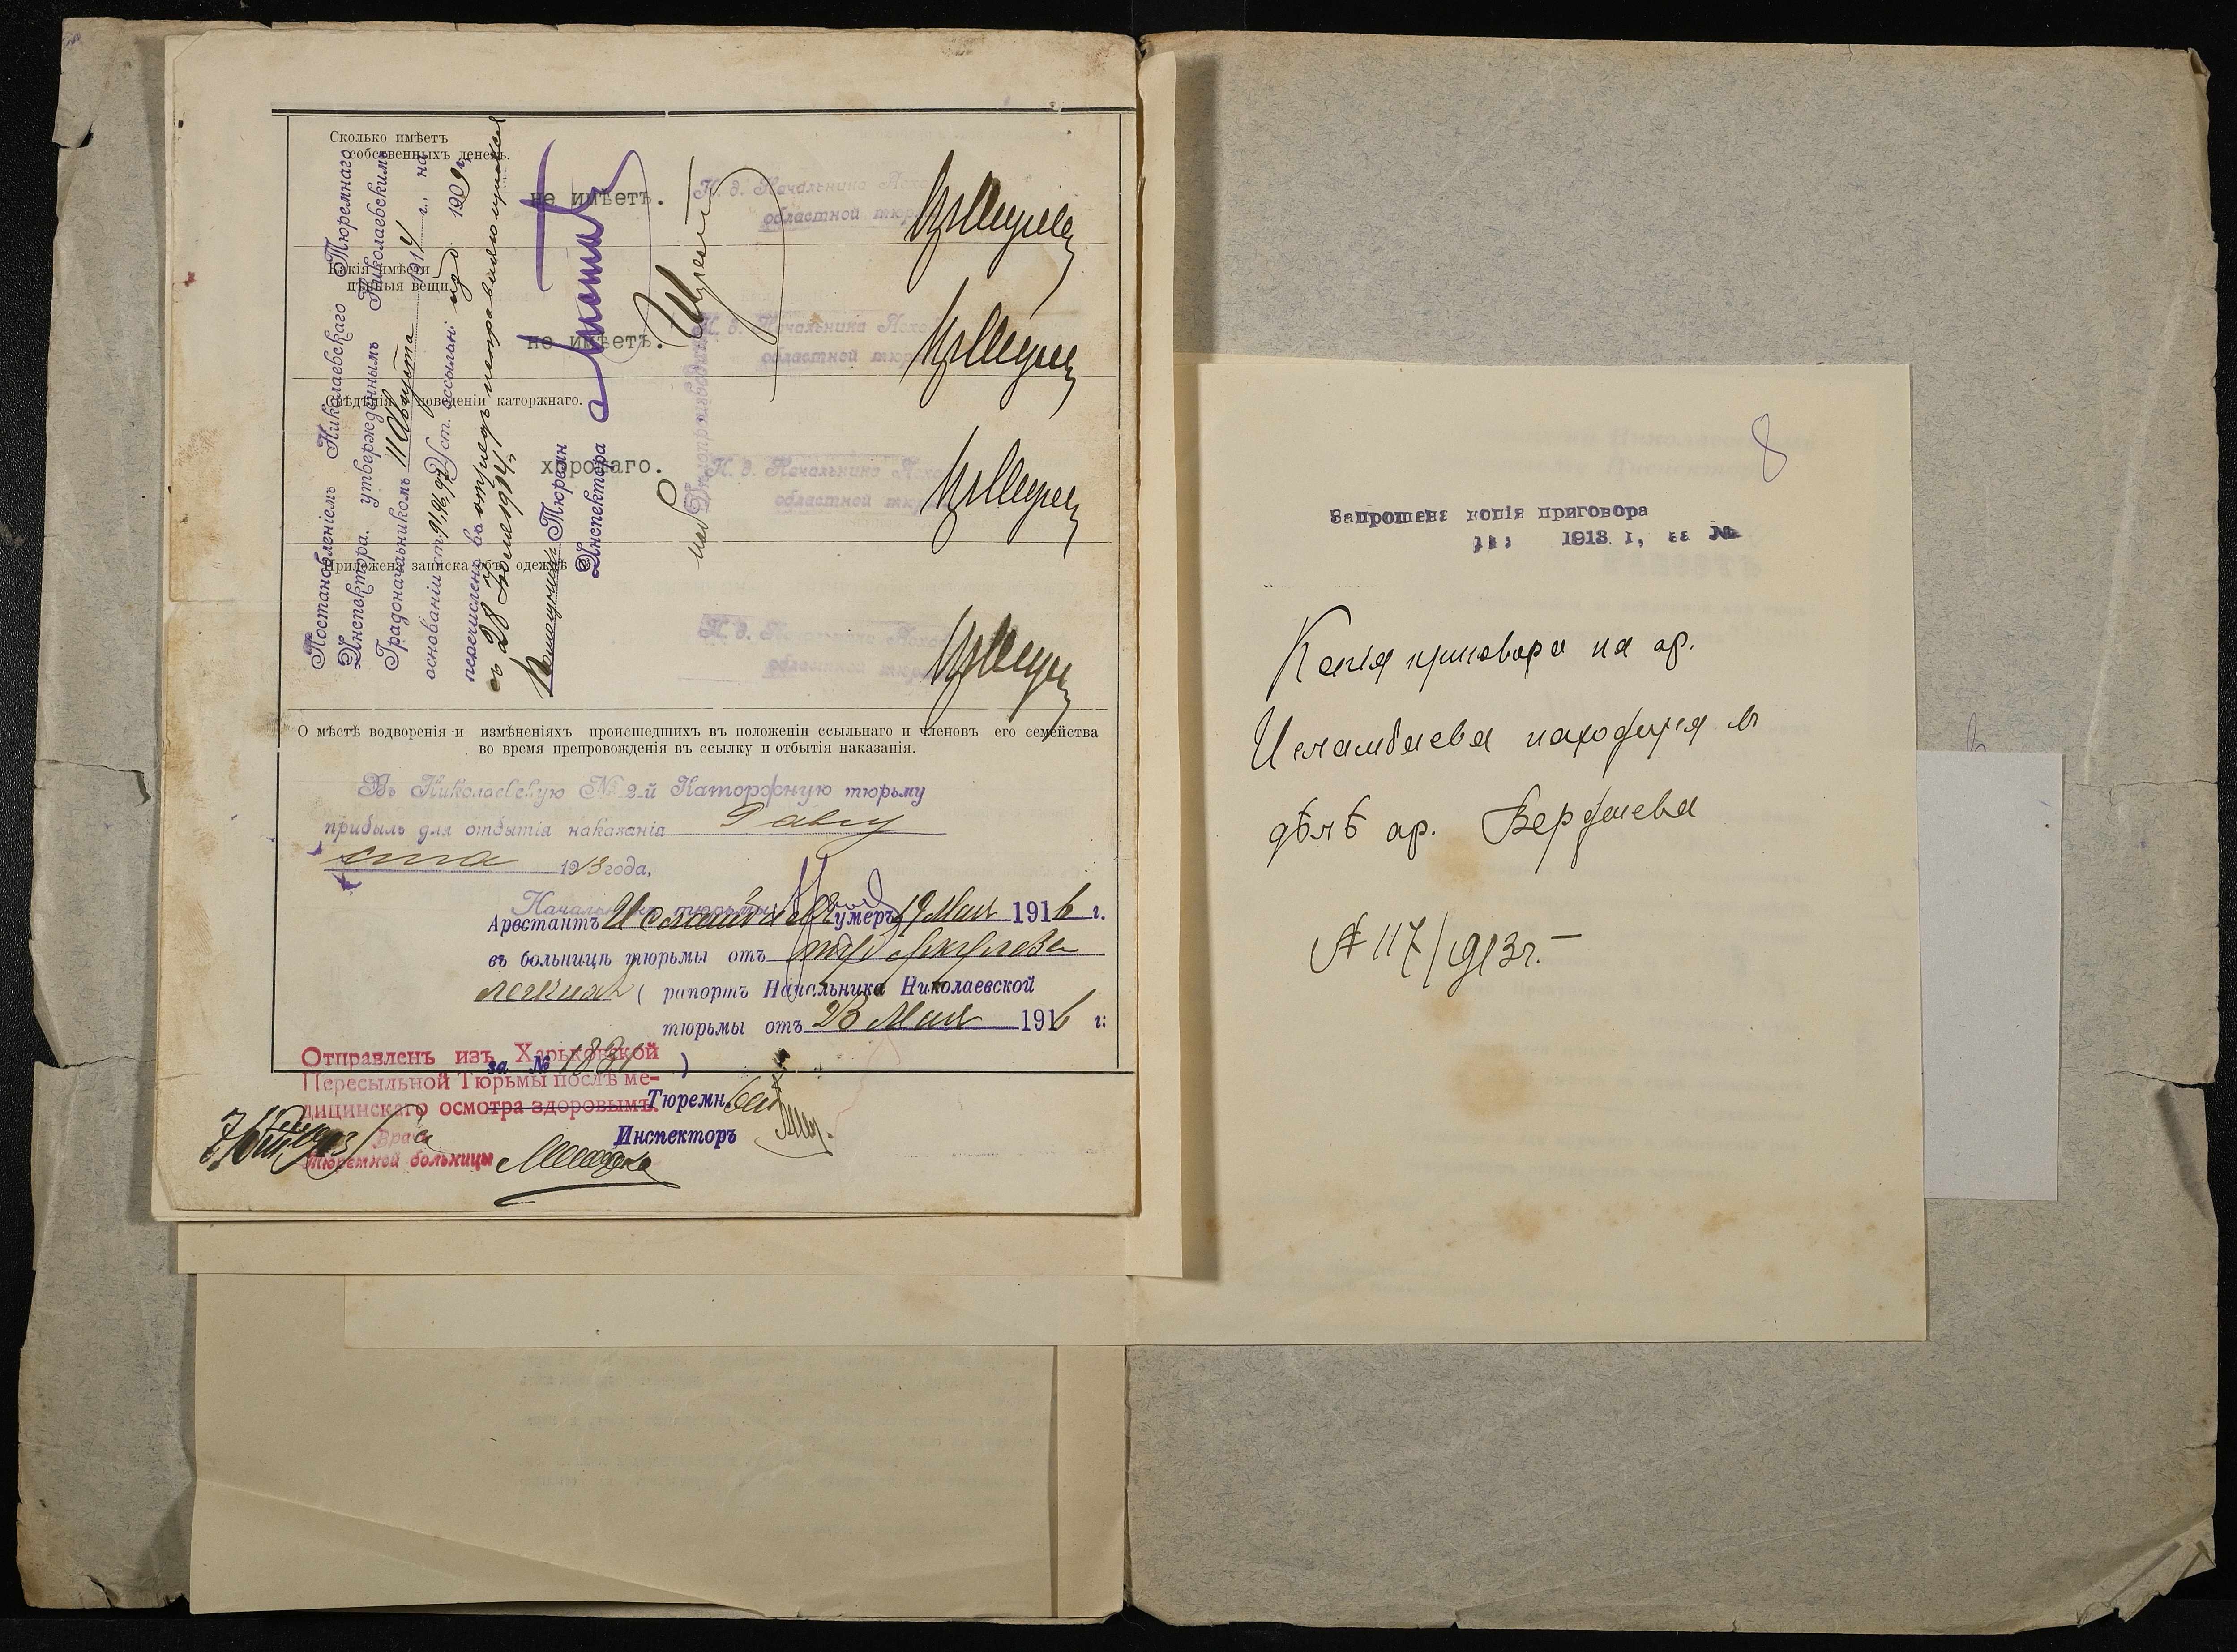 Сколько имѣетъ
собственныхъ денегъ.
не имѣетъ.
И. д. Начальника Асха
областной тюр
Какія имѣетъ
цѣнныя вещи
не имѣетъ.
И. д. Начальника Асха
областной тюр
Свѣдѣнія о поведеніи каторжнаго.
хорошаго.
И. д. Начальника Асха
областной тюр
Приложена записка объ одеждѣ
И. д. Начальника Асхо
областной тюр
Постановленіемъ Николаевскаго Тюремнаго
Инспектора, утвержденнымъ Николаевскимъ
Градоначальникомъ 11 Августа 1914 г., на
основаніи ст. Уст. ссыльн. изд. 1909 г.
перечисленъ въ отрядъ исправляющихся
съ 28 Іюля 1914 г.
Помощникъ Тюремн
Инспектора
О мѣстѣ водворенія и измѣненіяхъ происшедшихъ въ положеніи ссыльнаго и членовъ его семейства
во время препровожденія въ ссылку и отбытія наказанія.
Въ Николаевскую № 2-й Каторжную тюрьму
прибылъ для отбытія наказанія 9 авгу
ста 1913 года,
Начальникъ тюрьмы
Арестантъ Исламбаевъ умеръ 19 Мая 1916 г.
въ больницѣ тюрьмы отъ туберкулеза
легкихъ ( рапортъ Начальника Николаевской
тюрьмы отъ 23 Мая 1916 г.
за № 1831 )
Тюремн.
Инспекторъ
Отправленъ изъ Харьковской
Пересыльной Тюрьмы послѣ ме-
дицинскаго осмотра здоровымъ.
Врачъ
тюремной больницы
8
Запрошена копія приговора
1913 г., за №
Копія приговора на ар.
Исламбаева находится въ
дѣлѣ ар. Бердыева
№ 117/1913 г.